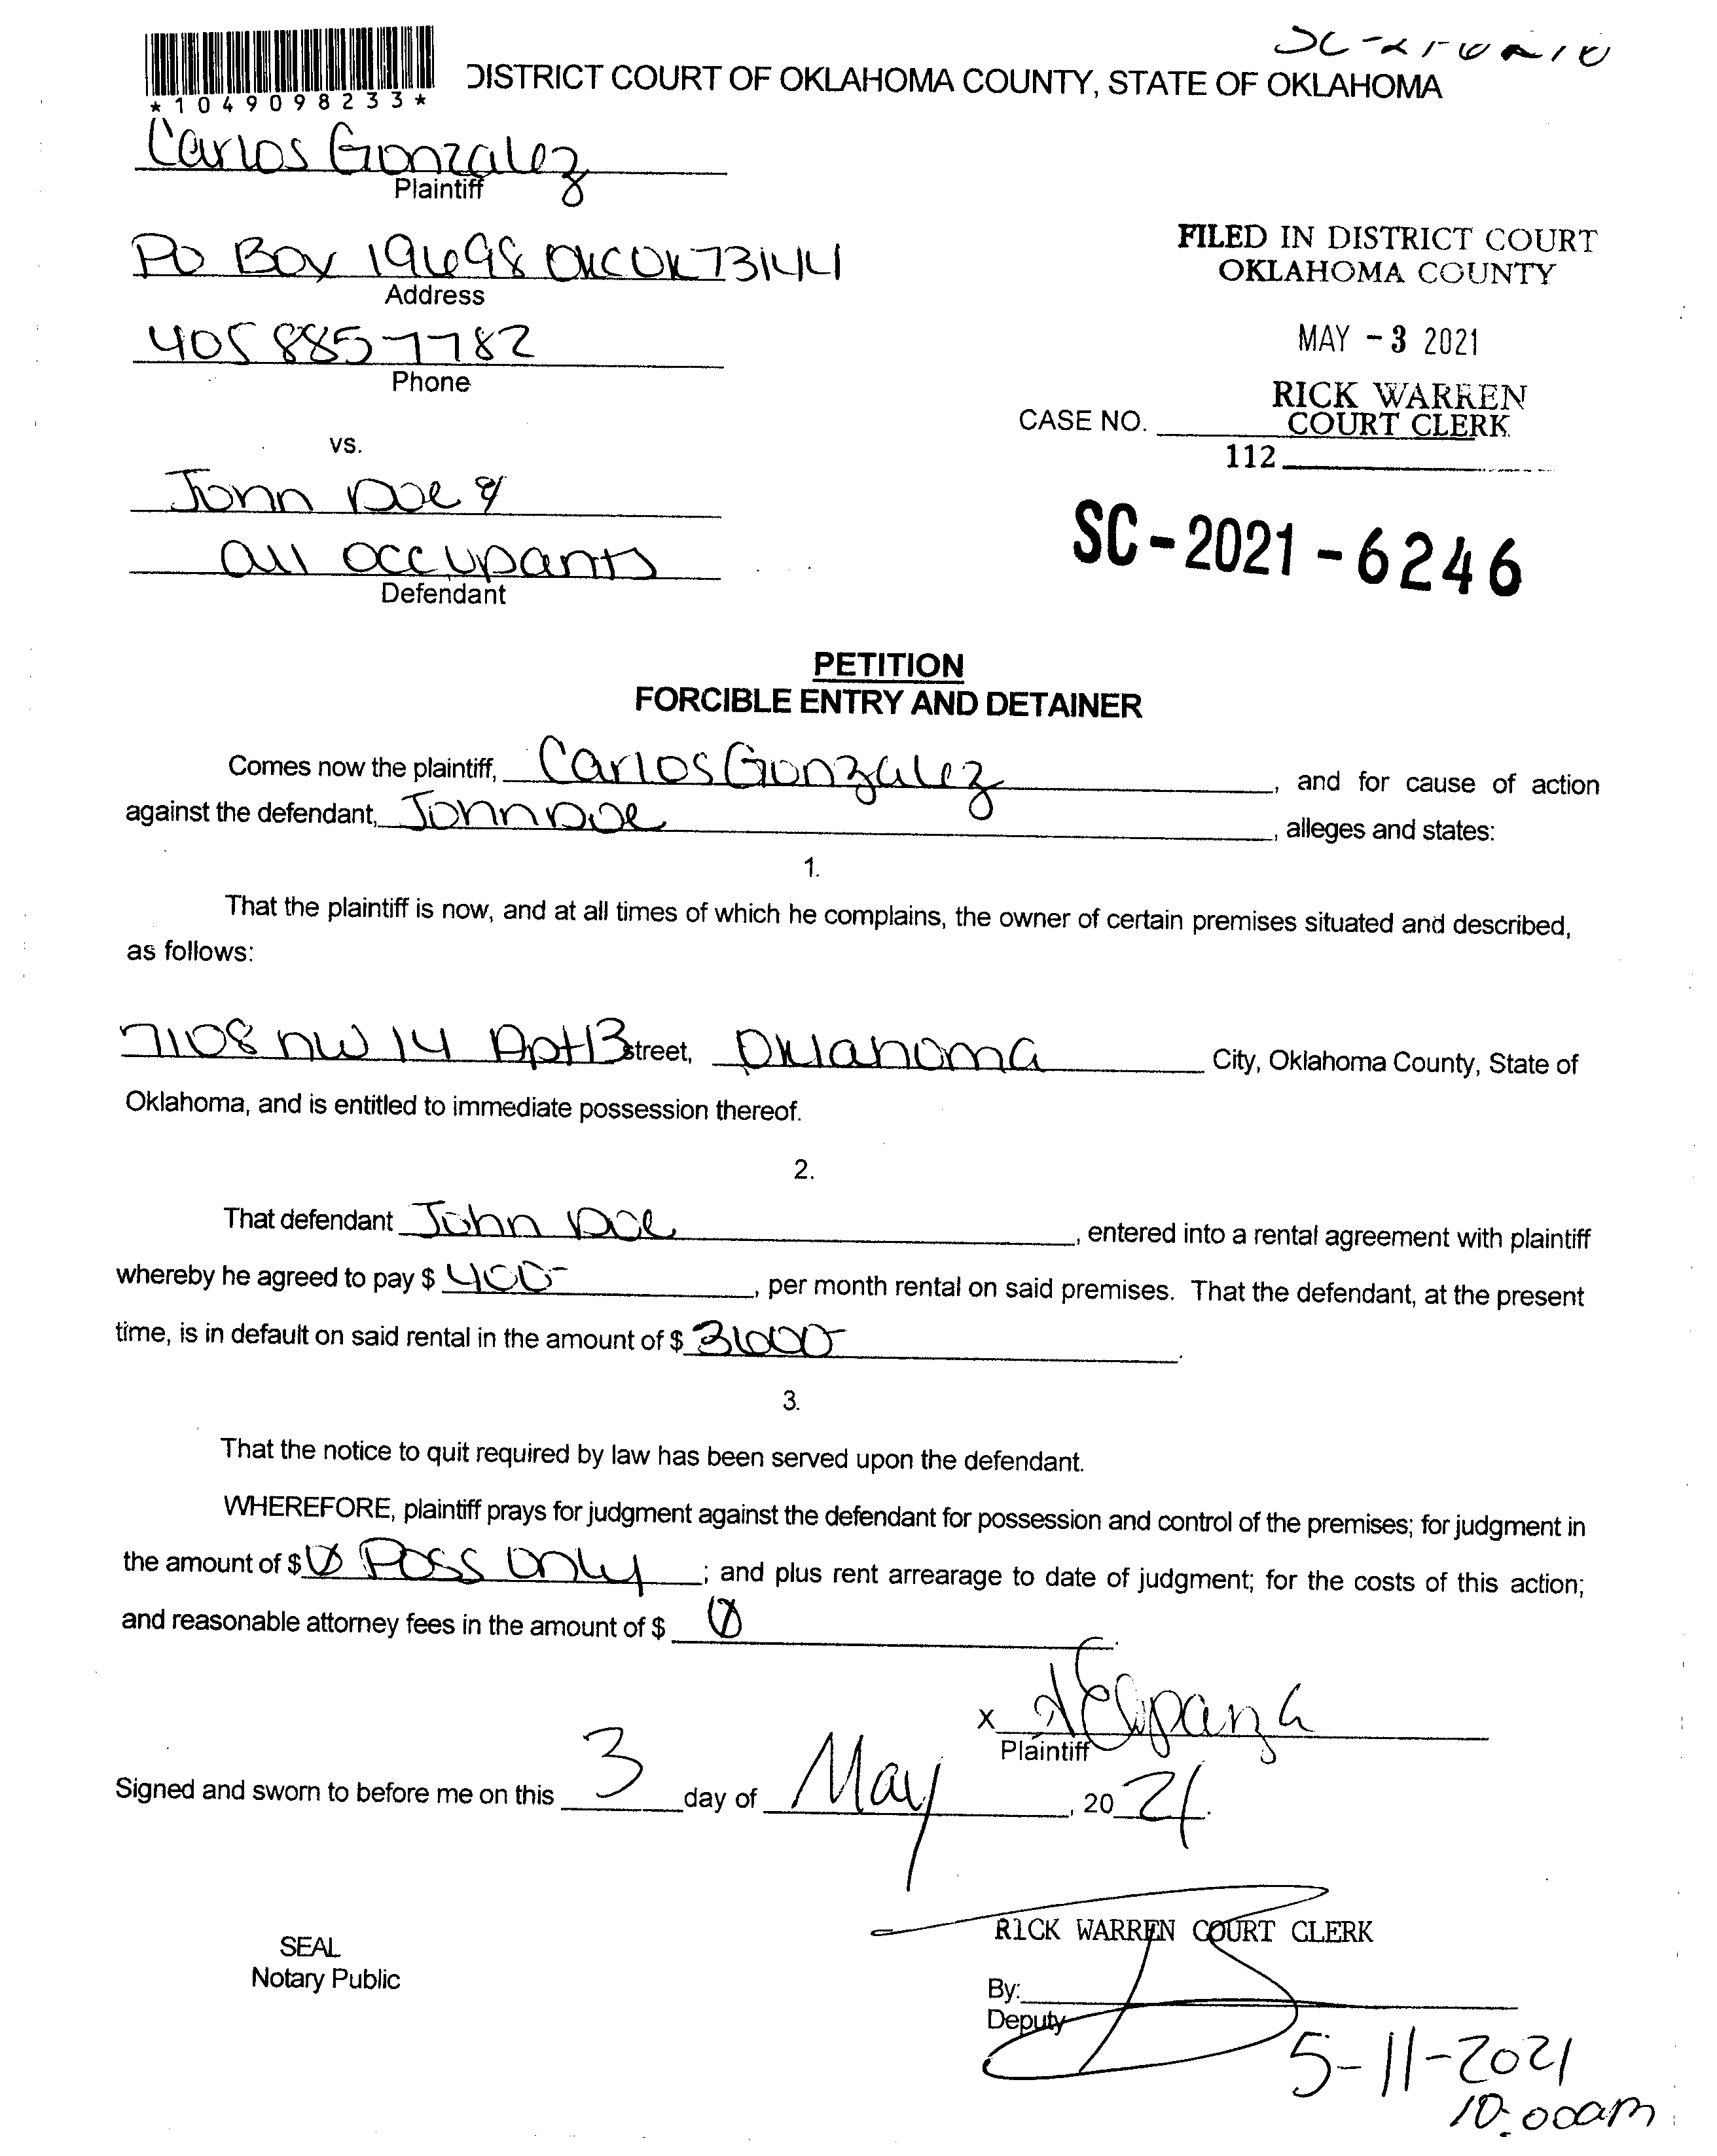 *1049098233*
DISTRICT COURT OF OKLAHOMA COUNTY, STATE OF OKLAHOMA
Carlos Gonzalez
Plaintiff
PO Box 19698 OKC OK 73144
Address
405 885 7782
Phone
FILED IN DISTRICT COURT
OKLAHOMA COUNTY
MAY - 3 2021
RICK WARREN
COURT CLERK
CASE NO.
112
vs.
John Doe &
all occupants
Defendant
SC-2021-6246
PETITION
FORCIBLE ENTRY AND DETAINER
Comes now the plaintiff, Carlos Gonzalez, and for cause of action
against the defendant, John Doe, alleges and states:
1.
That the plaintiff is now, and at all times of which he complains, the owner of certain premises situated and described,
as follows:
7108 NW 14 Apt 13 street, Oklahoma City, Oklahoma County, State of
Oklahoma, and is entitled to immediate possession thereof.
2.
That defendant John Doe, entered into a rental agreement with plaintiff
whereby he agreed to pay $ 400-, per month rental on said premises. That the defendant, at the present
time, is in default on said rental in the amount of $ .
3.
That the notice to quit required by law has been served upon the defendant.
WHEREFORE, plaintiff prays for judgment against the defendant for possession and control of the premises; for judgment in
the amount of $ Ø Poss Only ; and plus rent arrearage to date of judgment; for the costs of this action;
and reasonable attorney fees in the amount of $ Ø.
x
Plaintiff
Signed and sworn to before me on this 3 day of May, 2021.
RICK WARREN COURT CLERK
SEAL
Notary Public
By:
Deputy
5-11-2021
10:00am